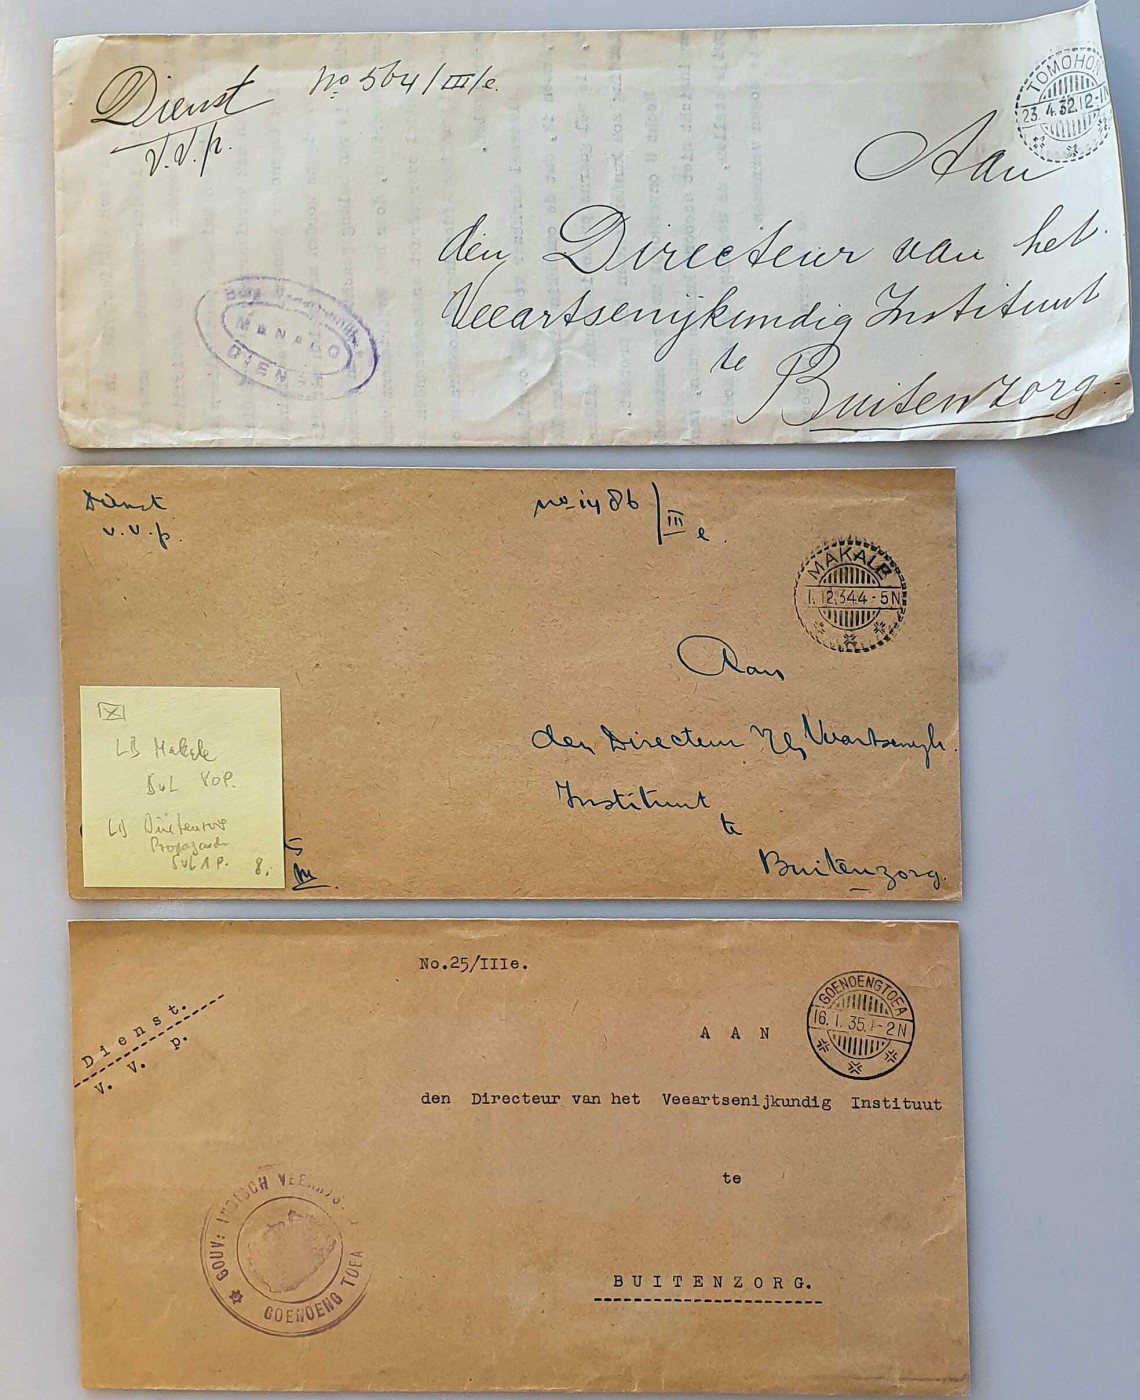 Dienst
V.V.p.
No 564/III/e.
TOMOHON
23.4.32.12-1N
Aan
den Directeur van het
Veeartsenijkundig Instituut
te
Buitenzorg.
MANADO
DIENST
Dienst
v.v.p.
No 1486/III e.
MAKALE
1.12.34.4-5N
Aan
den Directeur Veeartsenijk.
Instituut
te
Buitenzorg.
LB Makale
LB
Propaganda
8.
No.25/IIIe.
Dienst.
V. V. p.
GOENOENGTOEA
16.1.35.1-2N
AAN
den Directeur van het Veeartsenijkundig Instituut
te
BUITENZORG.
GOUV: INDISCH
GOENOENG TOEA